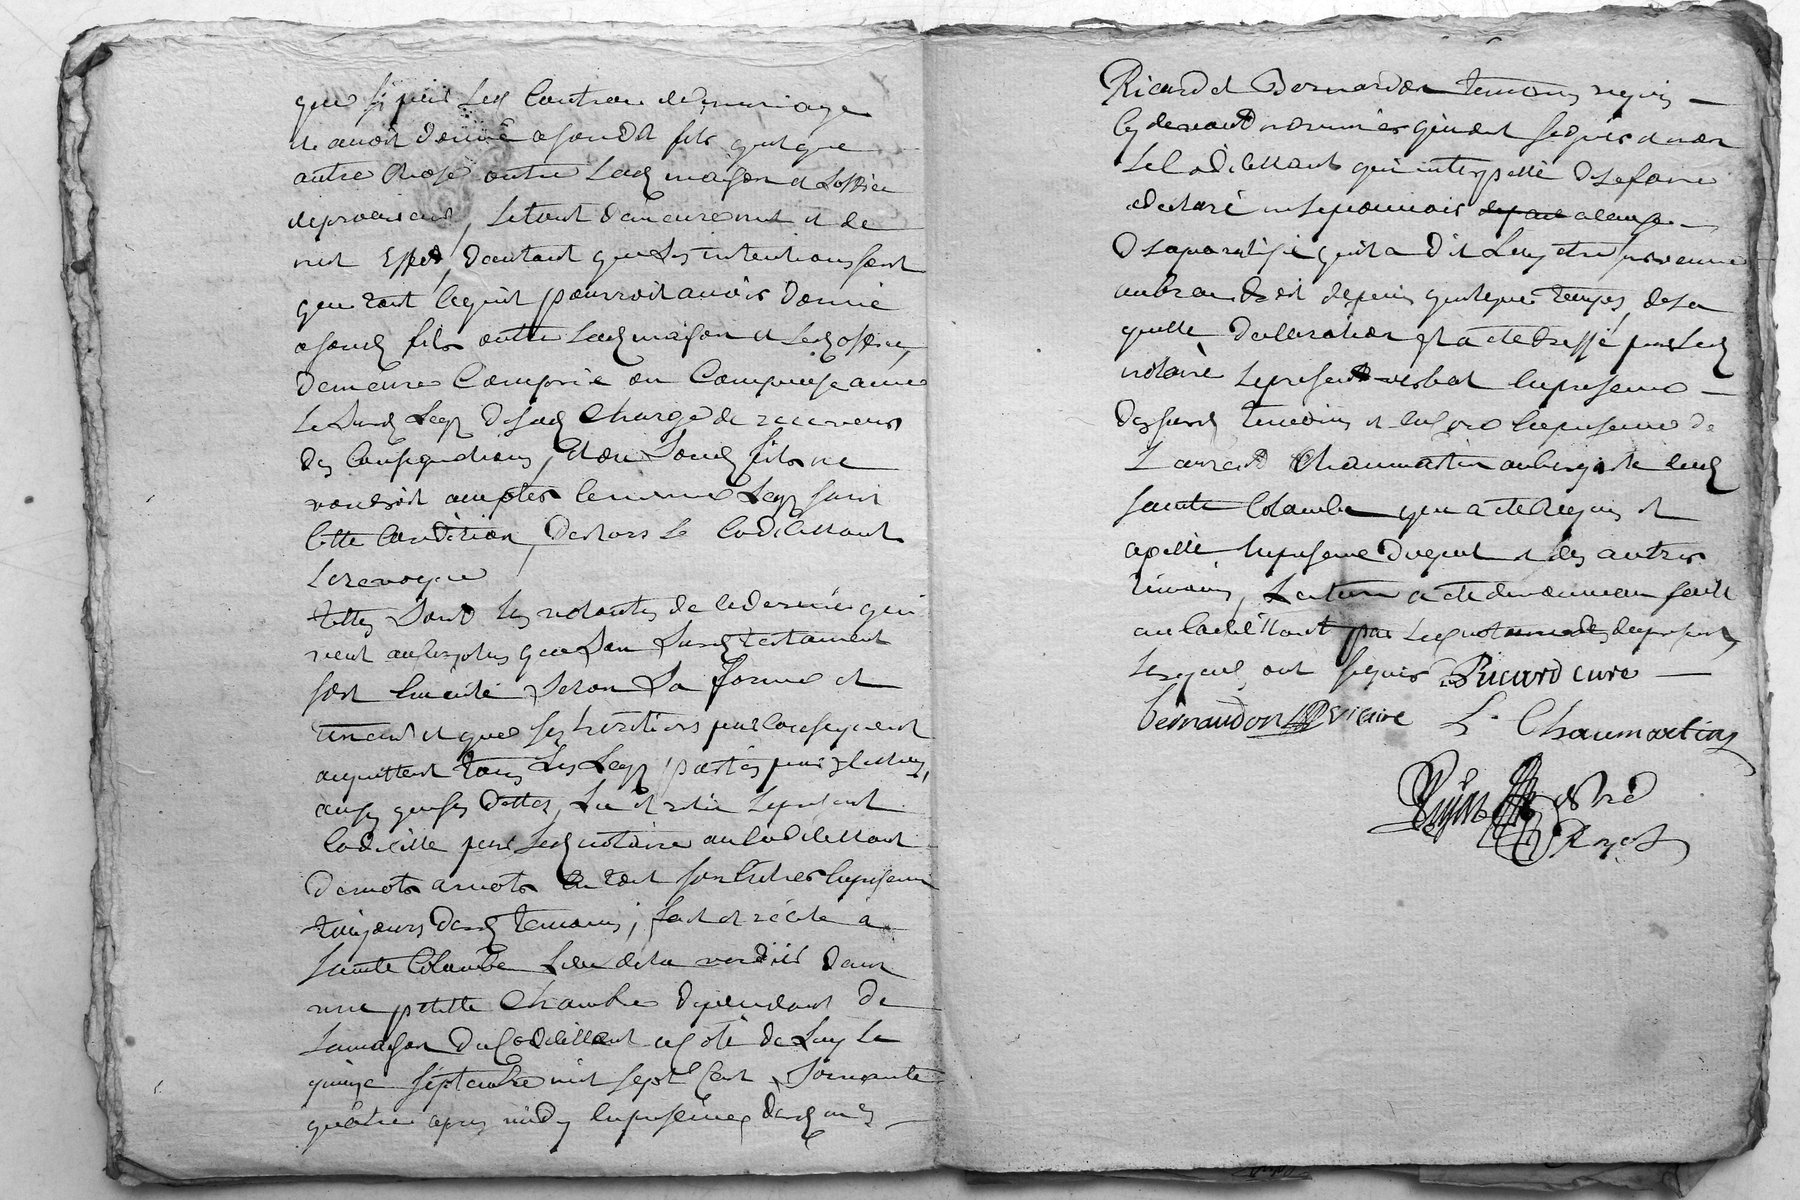 que si par led Contrat de mariage
il avoit donné a sondt fils quelque
autre Chose outre lad maison et loffice
de procureur, le tout demeure nul et de
nul effet, dautant que ses intentions sont
que tout ce quil pourroit avoir donné
a sond fils outre lad maison et led office,
demeure Compris ou Compensé avec
le susd Legs de sad Charge de receveur
des Consignations, et ou sond fils ne
voudroit accepter le meme Legs sous
Cette Condition, deslors le Codicillant
le revoque
telles sont les volontés de ce dernier qui
veut au surplus que son susd testament
soit execute selon sa forme et
teneur et que ses heritiers par consequent
acquittent tous les Legs portés par
ainsy que ses dettes, Lu et relu le present
Codicille par led notaire au Codicillant
de mots a mots en tout son en presence
toujours desd temoins; fait et récité à
sainte Colombe Lieu de la dans
une petite Chambre dependant de
la maison du Codicillant a coté de Luy le
quinze septembre mil sept Cent soixante
quatre apres midy en presence desd mes
Ricard et Bernardon temoins requis
Cy devant nommés qui ont signés et non
le Codicillant qui interpellé de le faire
a declaré ne le pouvoir a cause
de la paralisie quil a dit Luy etre survenue
au bras droit depuis quelque temps, de la
quelle declaration est a eté dressé par led
notaire le present verbal en presence
desd temoins et encore en presence de
Laurent Chaumartin aubergiste aud
sainte Colombe qui a eté requis et
apellé en presence duquel et des autres
témoins, Lecture a eté de nouveau faite
au Codicillant par led notaire du present,
lesquels ont signés Ricard curé
bernardon vicaire L. Chaumartin